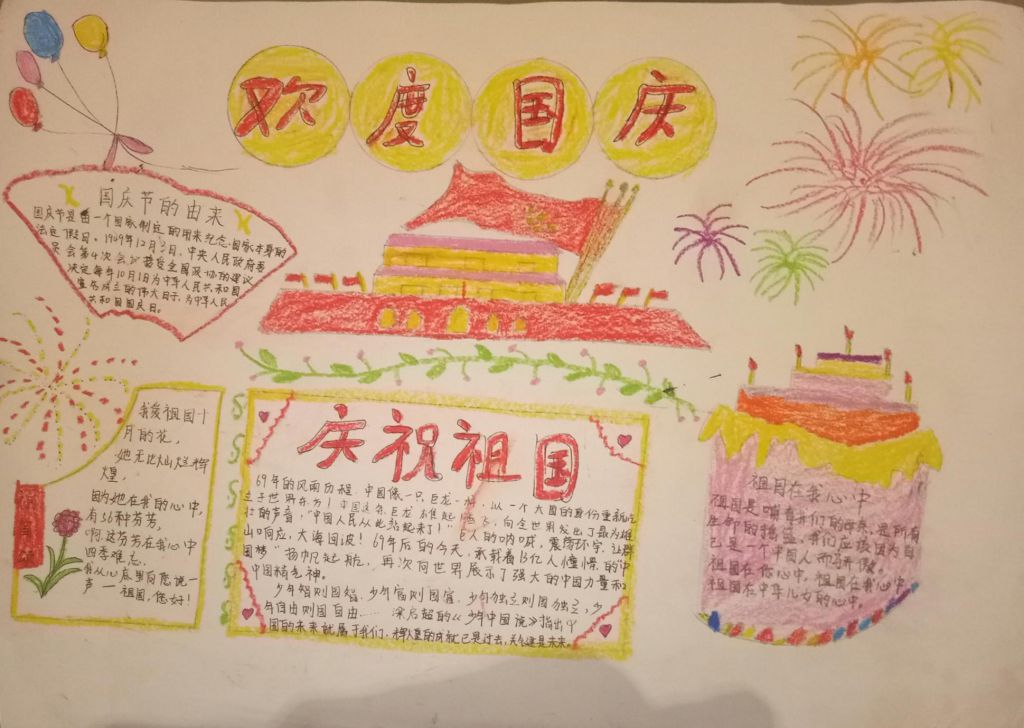 欢度国庆
国庆节的由来
国庆节是由一个国家制定的用来纪念国家本身的
法定假日。1949年12月2日，中央人民政府委
员会第4次会议接受全国政协的建议
决定每年10月1日为中华人民共和国
宣告成立的伟大日子，为中华人民
共和国国庆日。
我爱祖国十
月的花，
她无比灿烂辉
煌，
因为她在我的心中，
有56种芬芳，
啊，这芬芳在我心中
四季难忘，
我从心底里向您说一
声一祖国，您好！
庆祝祖国
69年的风雨历程，中国像一只巨龙一样，以一个大国的身份重新屹
立于世界东方！中国这条巨龙
壮的声音，"中国人民从此站起来了！"巨人的呐喊，震荡环宇，让群
山响应，大海回波！69年后的今天，承载着13亿人憧憬的"中
国梦"扬帆起航，再次向世界展示了强大的中国力量和
中国精气神。
少年智则国智，少年富则国富，少年独立则国独立，少
年自由则国自由……梁启超的《少年中国说》指出中
国的未来就属于我们，辉煌的成就已是过去，关键是未来。
祖国在我心中
祖国是哺育我们的母亲，是所有
生命的摇篮，我们应该因为自
己是一个中国人而骄傲。
祖国在你心中，祖国在我心中
祖国在中华儿女的心中。